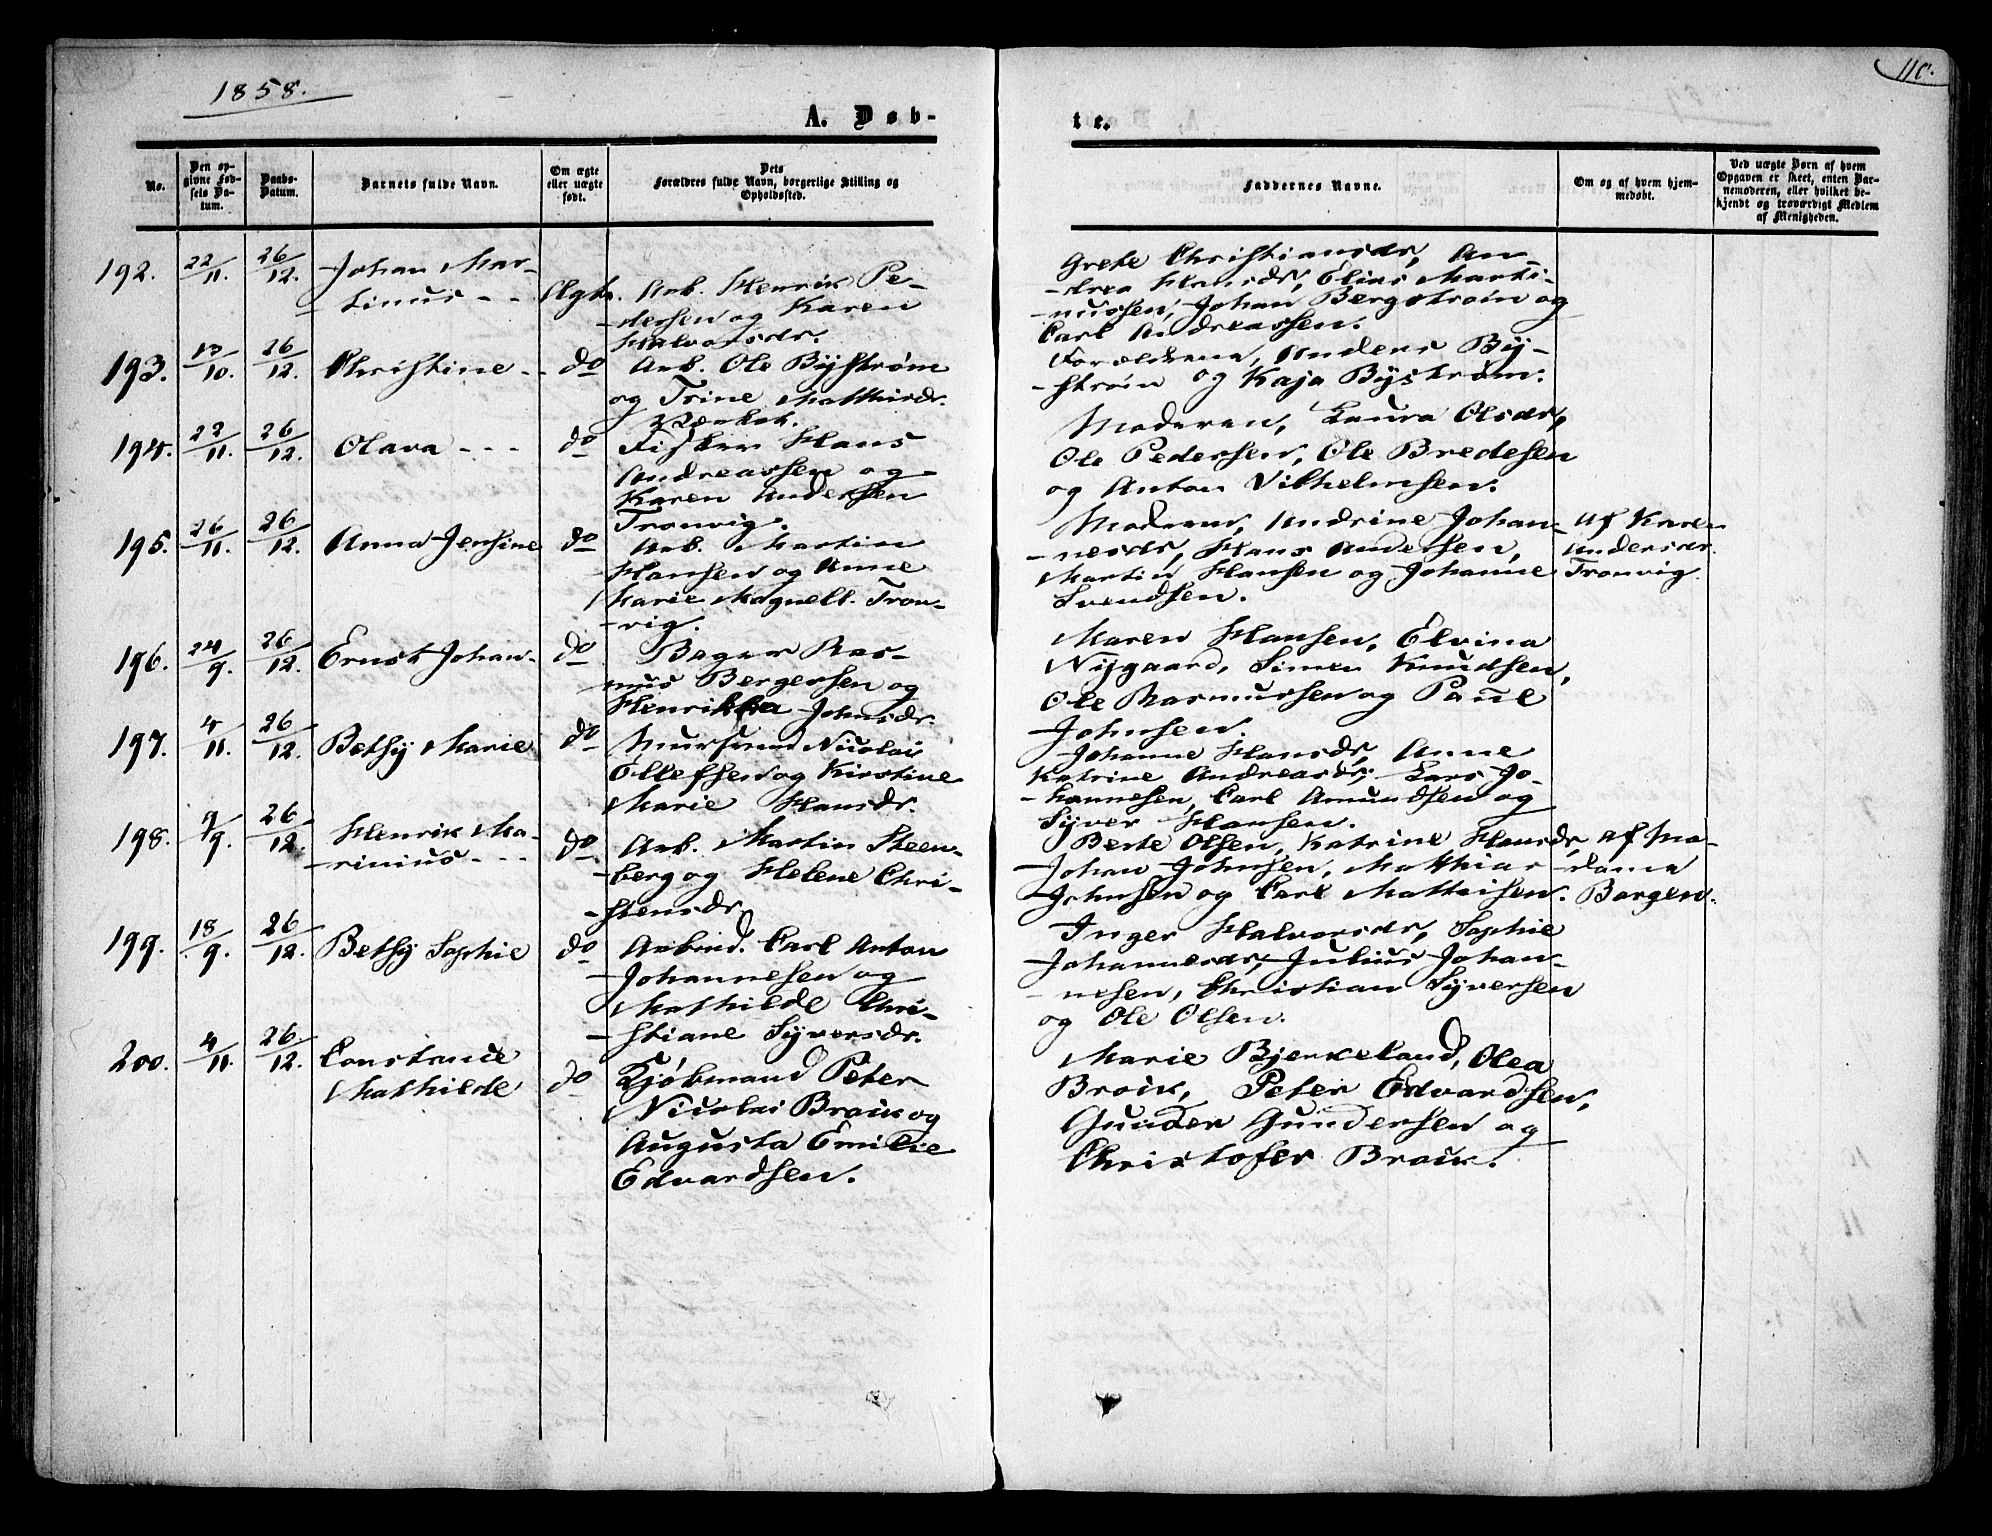 1858.
110.
A. Døb-
te.
No.
Den op-
givne Fød-
sels Da-
tum.
Daabs-
Datum.
Barnets fulde Navn.
Om ægte
eller uægte
født.
Dets
Forældres fulde Navn, borgerlige Stilling og
Opholdssted.
Faddernes Navne.
Om og af hvem hjem-
medøbt.
Ved uægte Børn af hvem
Opgaven er skeet, enten Bar-
nemoderen, eller hvilket be-
kjendt og troværdigt Medlem
af Menigheden.
192. 22/11. 26/12. Johan Mar-
tinus - - Ægte. Arb. Henrik Pe-
dersen og Karen
Halvorsdr.
Grete Christiansdr, An-
drea Hansdr, Elias Marti-
nussen, Johan Bergstrøm og
Carl Andreassen.
193. 13/10. 26/12. Christine - - do Arb. Ole Byström
og Trine Mathisdr.
Forældrene, Anders By-
strøm og Kaja Byström.
194. 22/11. 26/12. Olava - - - do Fisker Hans
Andreassen og
Karen Andersen
Tronvig.
Moderen, Laura Olsdr,
Ole Pedersen, Ole Bredesen
og Anton Vilhelmsen.
195. 26/11. 26/12. Anna Jensine do Arb. Martin
Hansen og Anne
Marie Magnell. Tron-
vig.
Moderen, Andrine Johan-
nesdr, Hans Andersen,
Martin Hansen og Johanne
Svendsen.
Af Karen
Andersdr.
Tronvig.
196. 24/9. 26/12. Ernst Johan- do Bager Ras-
mus Bergersen og
Henrikka Johnsdr.
Maren Hansen, Elvina
Nygaard, Simen Knudsen,
Ole Rasmussen og Paul
Johnsen.
197. 4/11. 26/12. Bethy Marie do Murswend Nicolai
Ellefsen og Kirstine
Marie Hansdr.
Johanne Hansdr, Anne
Katrine Andreasdr, Lars Jo-
hannesen, Carl Amundsen og
Syver Hansen.
198. 9/9. 26/12. Henrik Ma-
rinius - - - do Arb. Martin Steen-
berg og Helene Chri-
stensdr.
Berte Olsen, Katrine Hansdr,
Johan Johnsen, Mathias
Johnsen og Carl Mathisen.
Af Ma-
dame
Borgen.
199. 18/9. 26/12. Bethy Sophie do Arbmd. Carl Anton
Johannesen og
Mathilde Chri-
stiane Syversdr.
Inger Halvorsdr, Sophie
Johannesdr, Julius Johan-
nesen, Christian Syversen
og Ole Olsen.
200. 4/11. 26/12. Constance
Mathilde do Kjøbmand Peter
Nicolai Broik og
Augusta Emilie
Edvardsen.
Marie Bjerkeland, Olea
Broik, Peter Edvardsen,
Gunder Gundersen og
Christofer Broik.